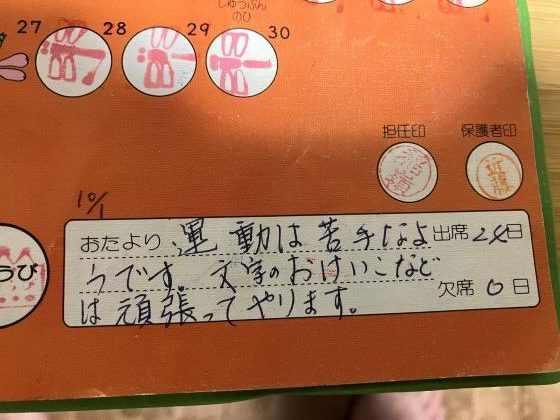 しゅうぶん
のひ
27 28 29 30
担任印 保護者印
10/1
おたより 運動は苦手なよ 出席24日
うです。文字のおけいこなど
は頑張ってやります。 欠席0日
うび